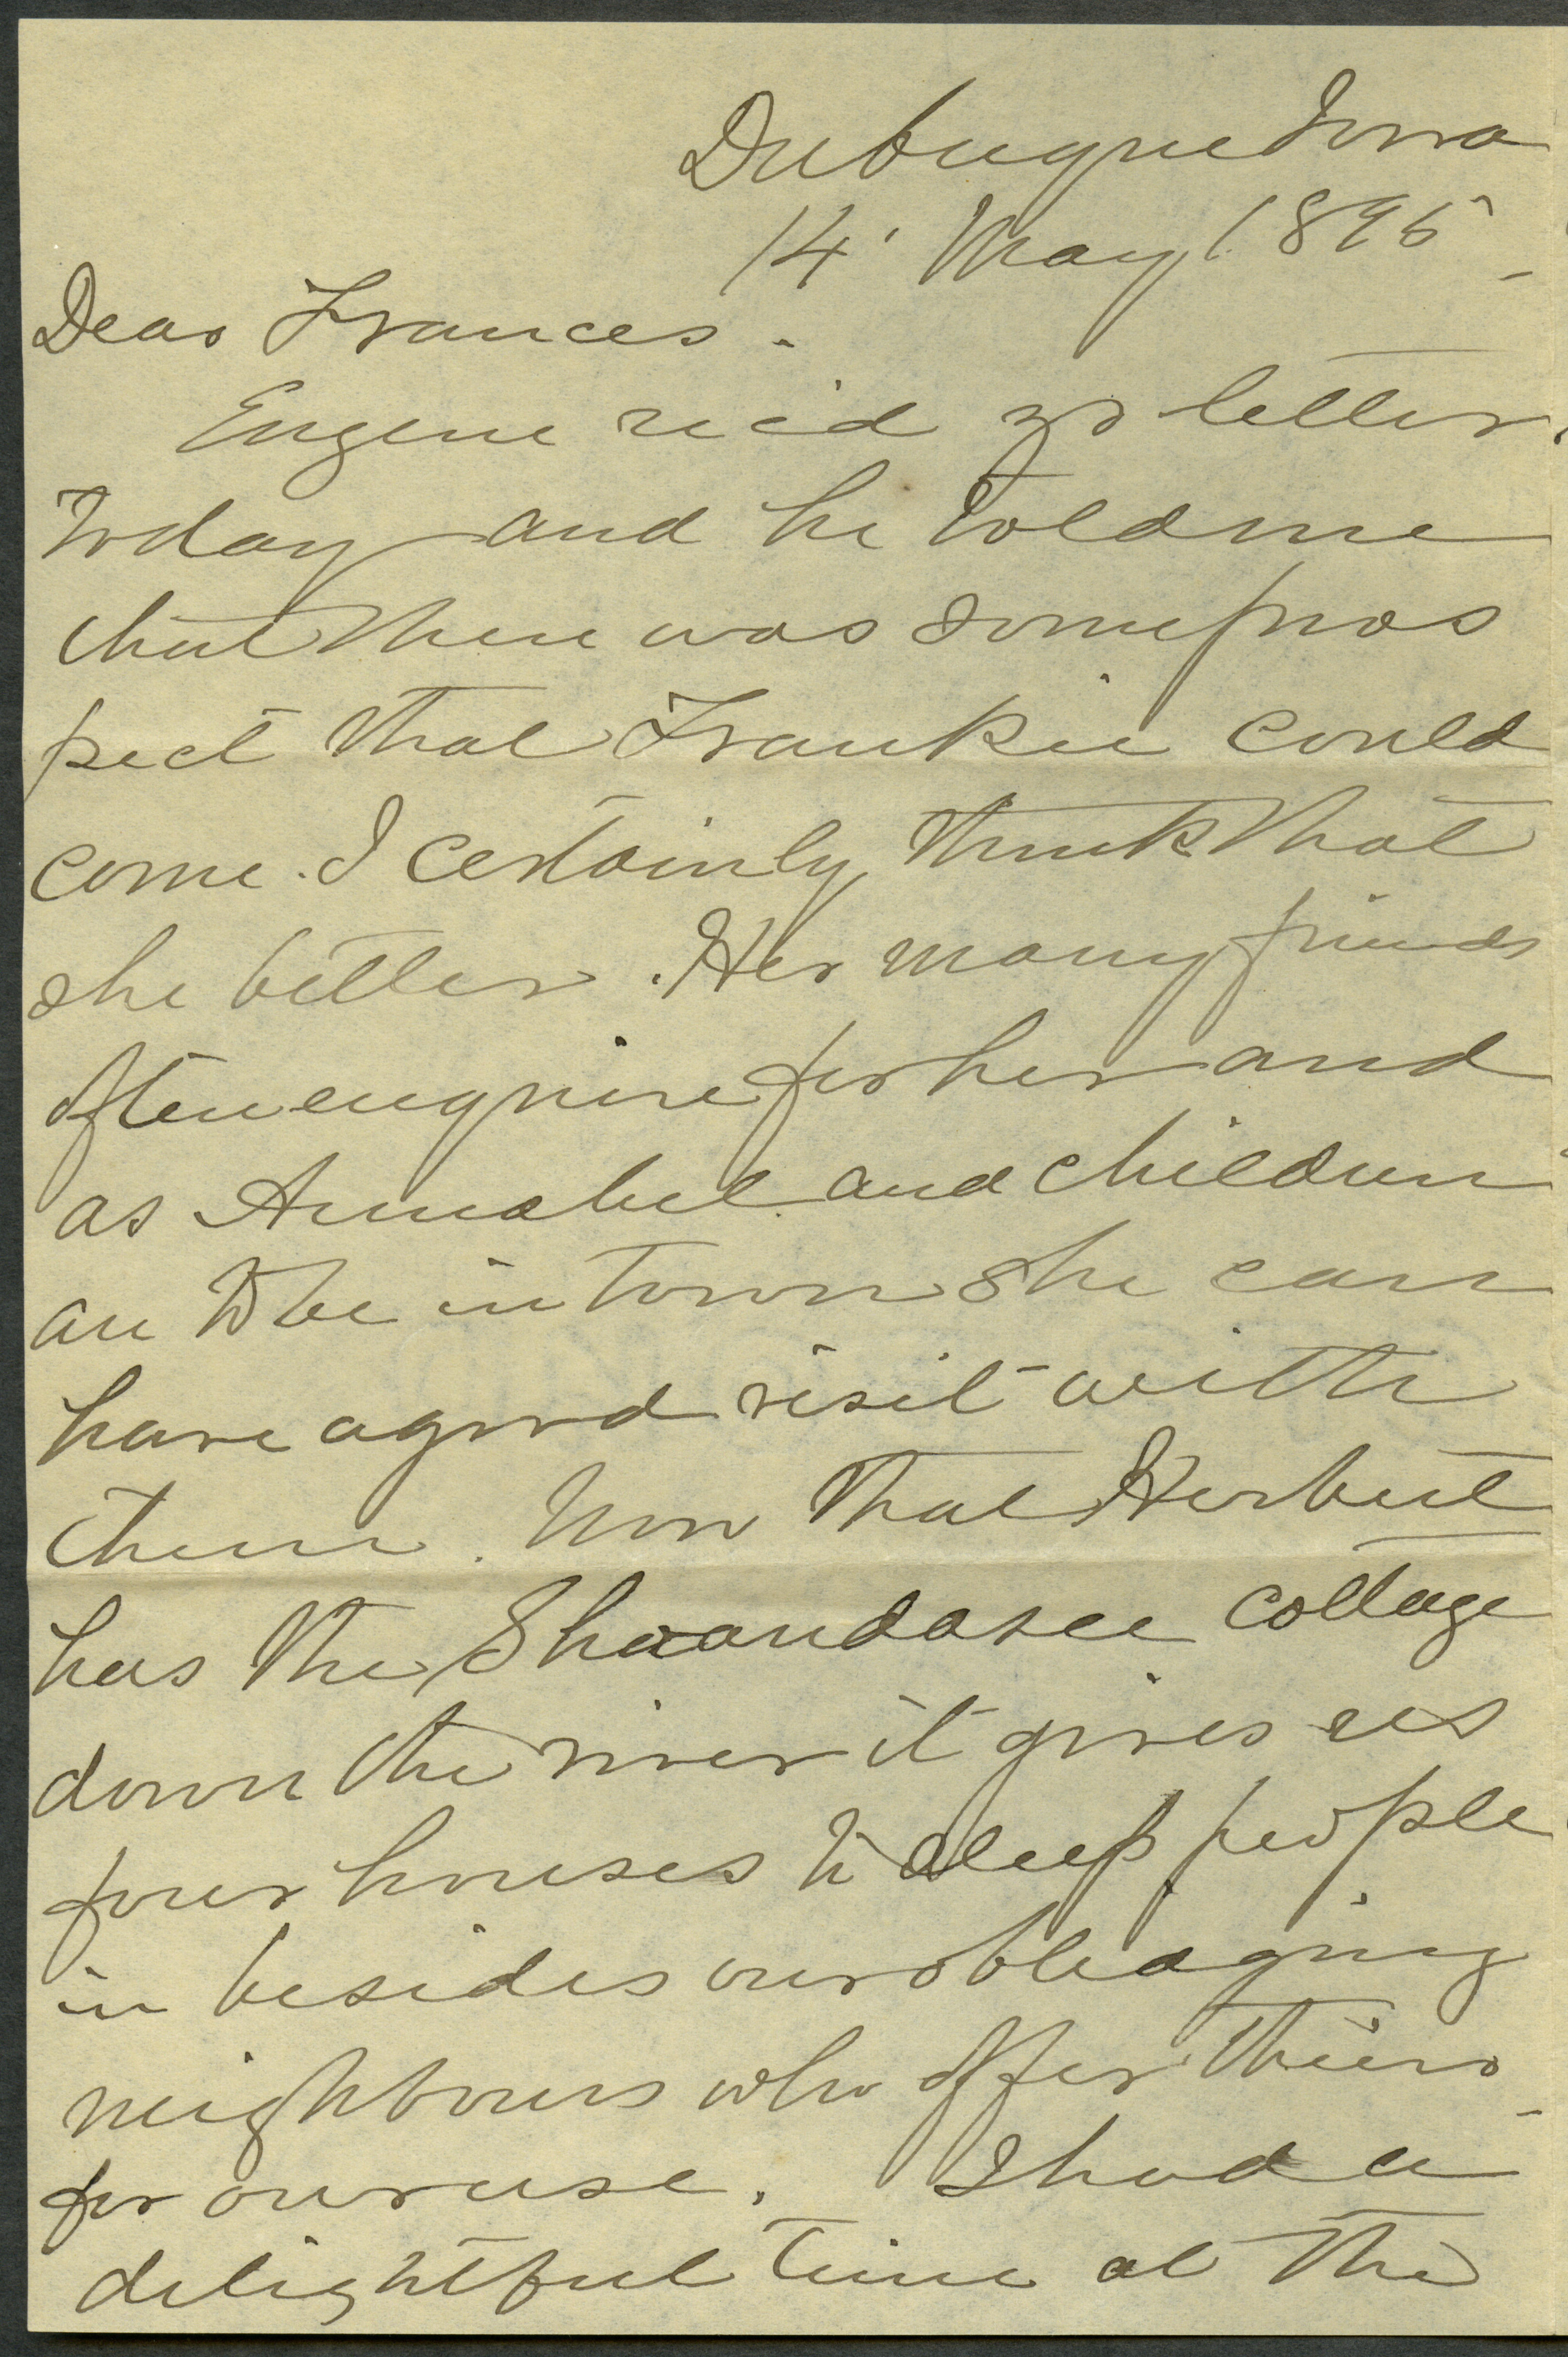 Dubuque Iowa
14' May 1895
Dear Frances.
Eugene rec'd yr letter
today and he told me
that there was some pros
pect that Frankie could
come. I certainly think that
she better. Her many friends
often enquire for her and
as Annabel and children
are to be in town she can
have a good visit with
them. Now that Herbert
has the Shaandasee cottage
down the river it gives us
four houses to sleep people
in besides our obleaging
neighbours who offer theirs
for our use. I had a
delightful time at the